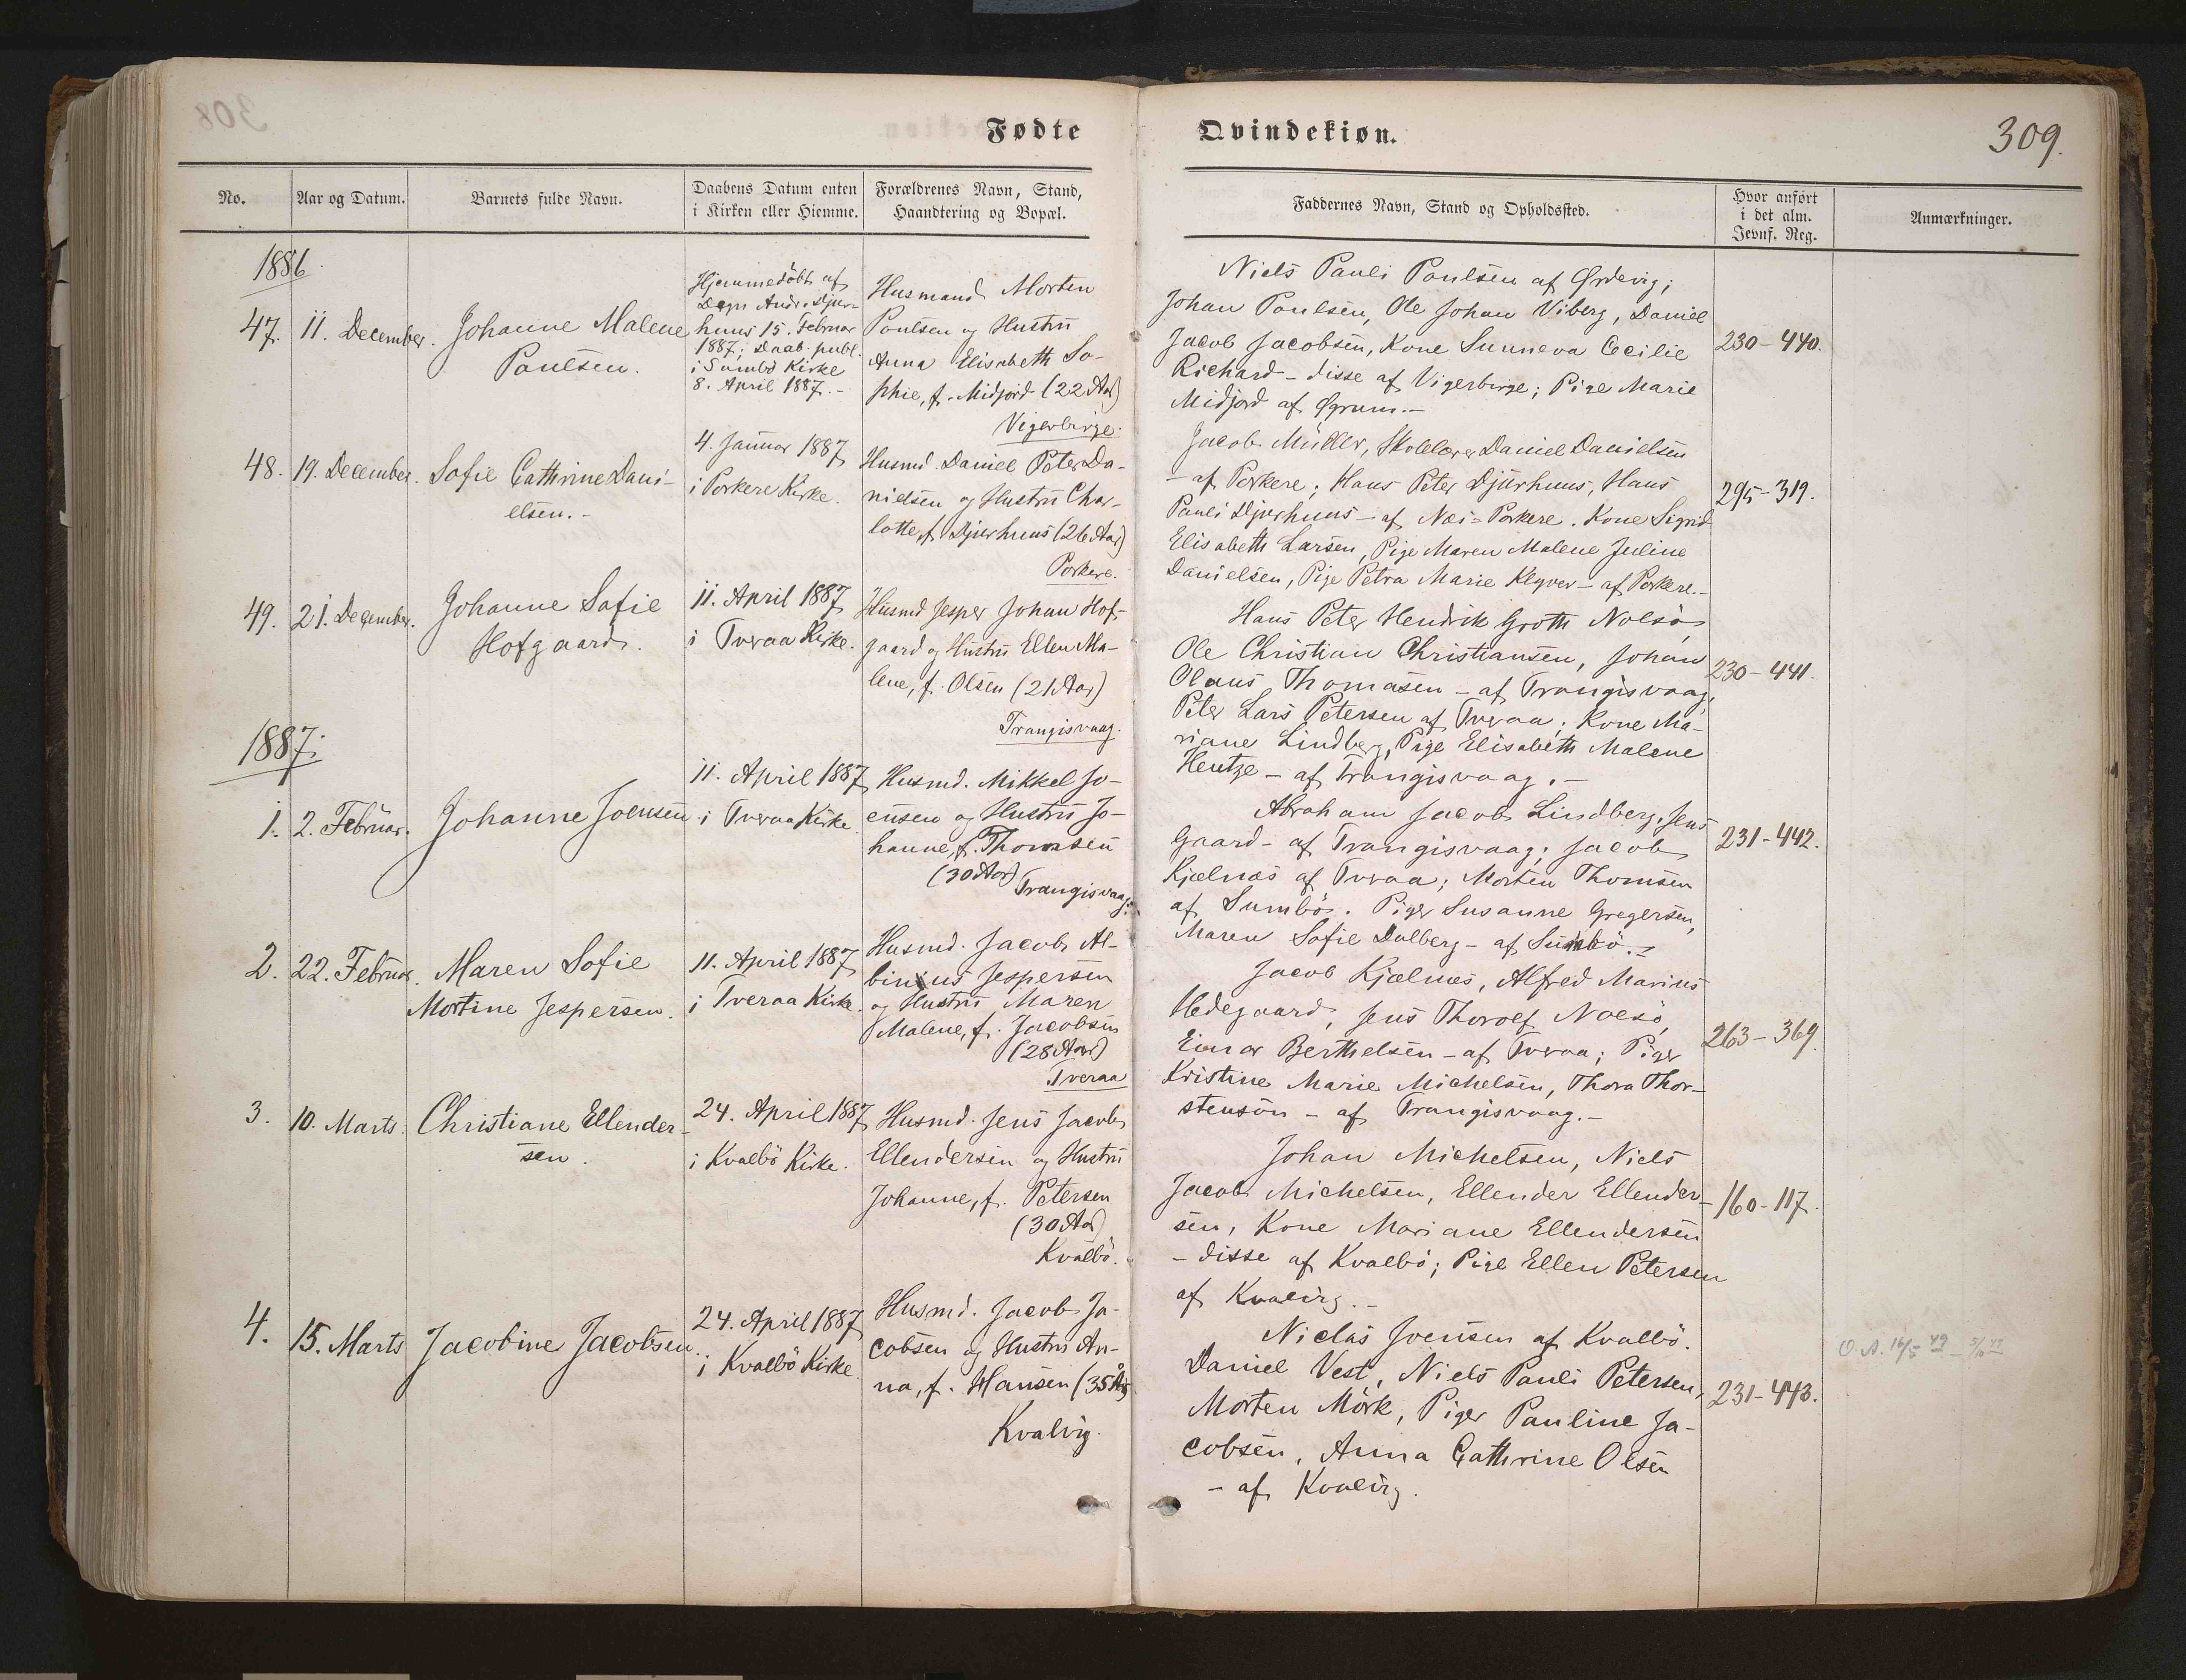 Fødte
Qvindekiøn.
309.
No.
Aar og Datum.
Barnets fulde Navn.
Daabens Datum enten
i Kirken eller Hiemme.
Forældrenes Navn, Stand,
Haandtering og Bopæl.
Faddernes Navn, Stand og Opholdssted.
Hvor anført
i det alm.
Jevnf. Reg.
Anmærkninger.
1886.
47.
11. December.
Johanne Malene
Poulsen.
Hjemmedöbt af
Degn Andr. Djur-
huus 15. Februar
1887; Daab. publ.
i Sumbö Kirke
8. April 1887.-
Husmand Morten
Poulsen og Hustru
Anna Elisabeth So-
phie, f. Midjord (22 Aar)
Vigerbirge.
Niels Pauli Poulsen af Ørdevig;
Johan Poulsen, Ole Johan Viberg, Daniel
Jacob Jacobsen, Kone Sunneva Cecilie
Richard - disse af Vigerbirge; Pige Marie
Midjord af Øgrum.-
230-440.
48.
19. December.
Sofie Cathrine Dani-
elsen.-
4. Januar 1887
i Porkere Kirke.
Husmd. Daniel Peter Da-
nielsen og Hustru Char-
lotte, f. Djurhuus (26 Aar)
Porkere.
Jacob Müller, Skolelærer Daniel Danielsen
- af Porkere; Hans Peter Djurhuus, Hans
Pauli Djurhuus - af Næs-Porkere. Kone Sigrid
Elisabeth Larsen, Pige Maren Malene Juline
Danielsen, Pige Petra Marie Klyver - af Porkere.-
295-319.
49.
21. December.
Johanne Sofie
Hofgaard.
11. April 1887
i Tveraa Kirke.
Husmd Jesper Johan Hof-
gaard og Hustru Ellen Ma-
lene, f. Olsen (21 Aar)
Trangisvaag.
Hans Peter Hendrik Groth Nolsö,
Ole Christian Christiansen, Johan
Olaus Thomasen - af Trangisvaag,
Peter Lars Petersen af Tveraa; Kone Ma-
riane Lindberg, Pige Elisabeth Malene
Hentze - af Trangisvaag.-
230-441.
1887.
1.
2. Februar.
Johanne Joensen
11. April 1887
i Tveraa Kirke.
Husmd. Mikkel Jo-
ensen og Hustru Jo-
hanne, f. Thomsen
(30 Aar)
Trangisvaag.
Abraham Jacob Lindberg, Jens
Gaard - af Trangisvaag; Jacob
Kjælnæs af Tveraa; Morten Thomsen
af Sumbö. Piger Susanne Gregersen,
Maren Sofie Dalberg - af Sumbö.-
231-442.
2.
22. Februar.
Maren Sofie
Mortine Jespersen.
11. April 1887
i Tveraa Kirke.
Husmd. Jacob Al-
binus Jespersen
og Hustru Maren
Malene, f. Jacobsen
(28 Aar)
Tveraa
Jacob Kjælnes, Alfred Marius
Hedegaard, Jens Thorolf Nolsö,
Einar Berthelsen - af Tveraa; Piger
Kristine Marie Michelsen, Thora Thor-
stensön - af Trangisvaag.-
263-369.
3.
10. Marts.
Christiane Ellender-
sen.
24. April 1887
i Kvalbö Kirke.
Husmd. Jens Jacob
Ellendersen og Hustru
Johanne, f. Petersen
(30 Aar)
Kvalbö.
Johan Michelsen, Niels
Jacob Michelsen, Ellender Ellender-
sen, Kone Mariane Ellendersen
- disse af Kvalbö; Pige Ellen Petersen
af Kvalvig.-
160-117.
4.
15. Marts
Jacobine Jacobsen.
24. April 1887
i Kvalbö Kirke.
Husmd. Jacob Ja-
cobsen og Hustru An-
na, f. Hansen (35 Aar)
Kvalvig.
Niclas Joensen af Kvalbö.
Daniel Vest, Niels Pauli Petersen,
Morten Mörk, Piger Pauline Ja-
cobsen, Anna Cathrine Olsen
- af Kvalvig.
231-443.